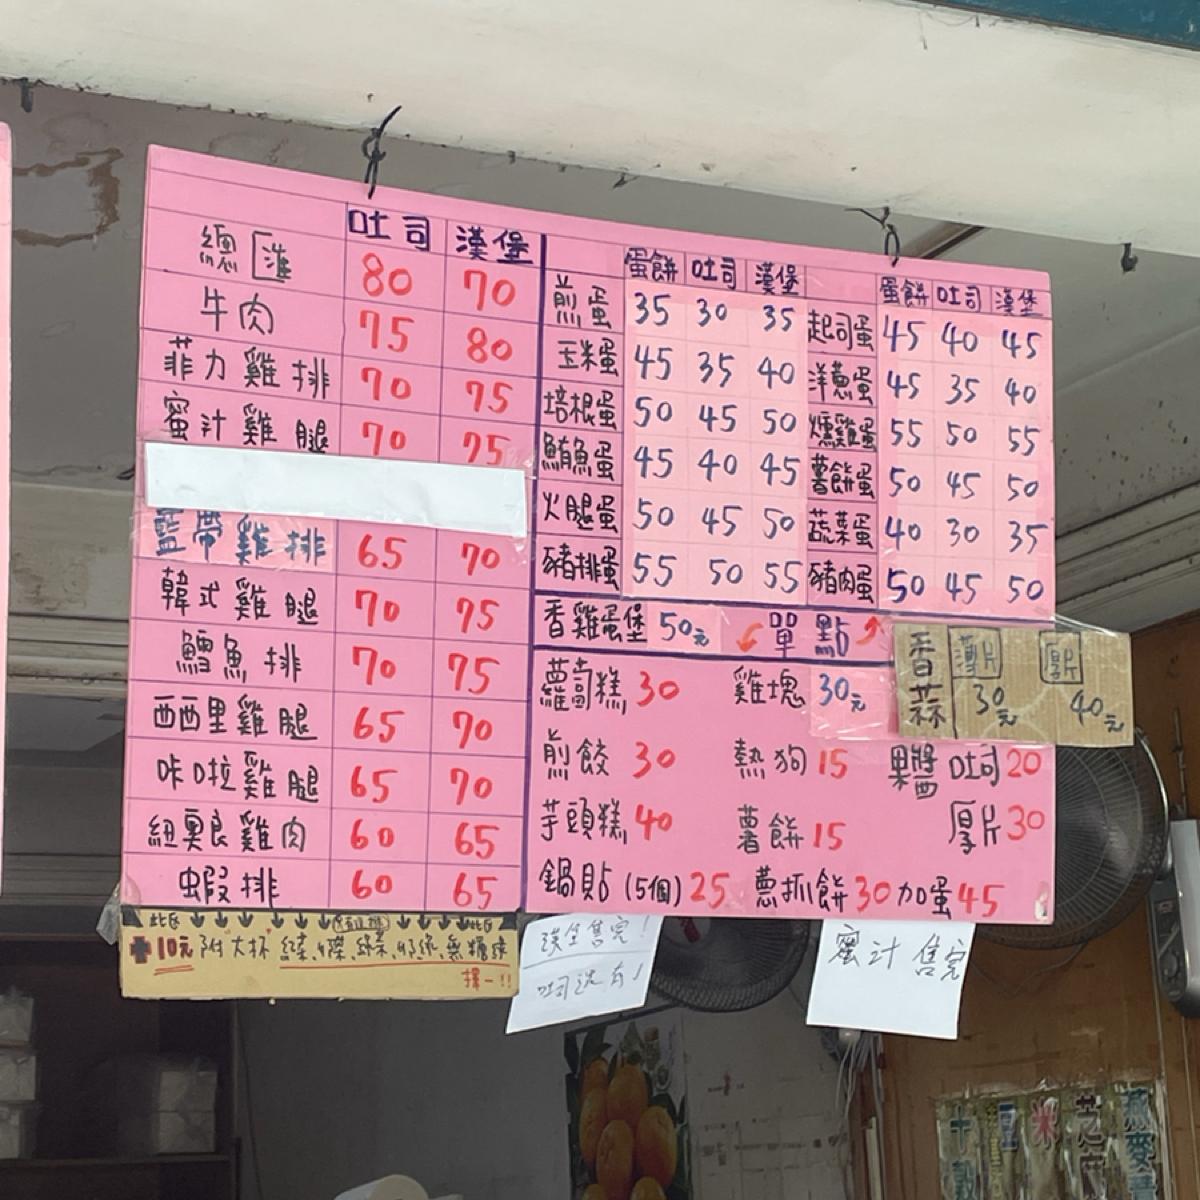 吐司 漢堡
總匯 80 70
牛肉 75 80
菲力雞排 70 75
蜜汁雞腿 70 75
藍帶雞排 65 70
韓式雞腿 70 75
鱈魚排 70 75
西西里雞腿 65 70
咔啦雞腿 65 70
紐奧良雞肉 60 65
蝦排 60 65
此區 此區
+10元 附大杯 紅茶、綠茶、奶綠、無糖綠
擇一!!
蛋餅 吐司 漢堡
煎蛋 35 30 35
玉米蛋 45 35 40
培根蛋 50 45 50
鮪魚蛋 45 40 45
火腿蛋 50 45 50
豬排蛋 55 50 55
蛋餅 吐司 漢堡
起司蛋 45 40 45
洋蔥蛋 45 35 40
燻雞蛋 55 50 55
薯餅蛋 50 45 50
蔬菜蛋 40 30 35
豬肉蛋 50 45 50
香雞蛋堡 50元
單點
蘿蔔糕 30 雞塊 30元
香蒜 薄片 30元 厚片 40元
煎餃 30 熱狗 15 果醬 吐司 20
芋頭糕 40 薯餅 15 厚片 30
鍋貼(5個) 25 蔥抓餅 30 加蛋 45
漢堡售完!
吐司還有!
蜜汁售完
十穀
豆
米
芝
燕麥